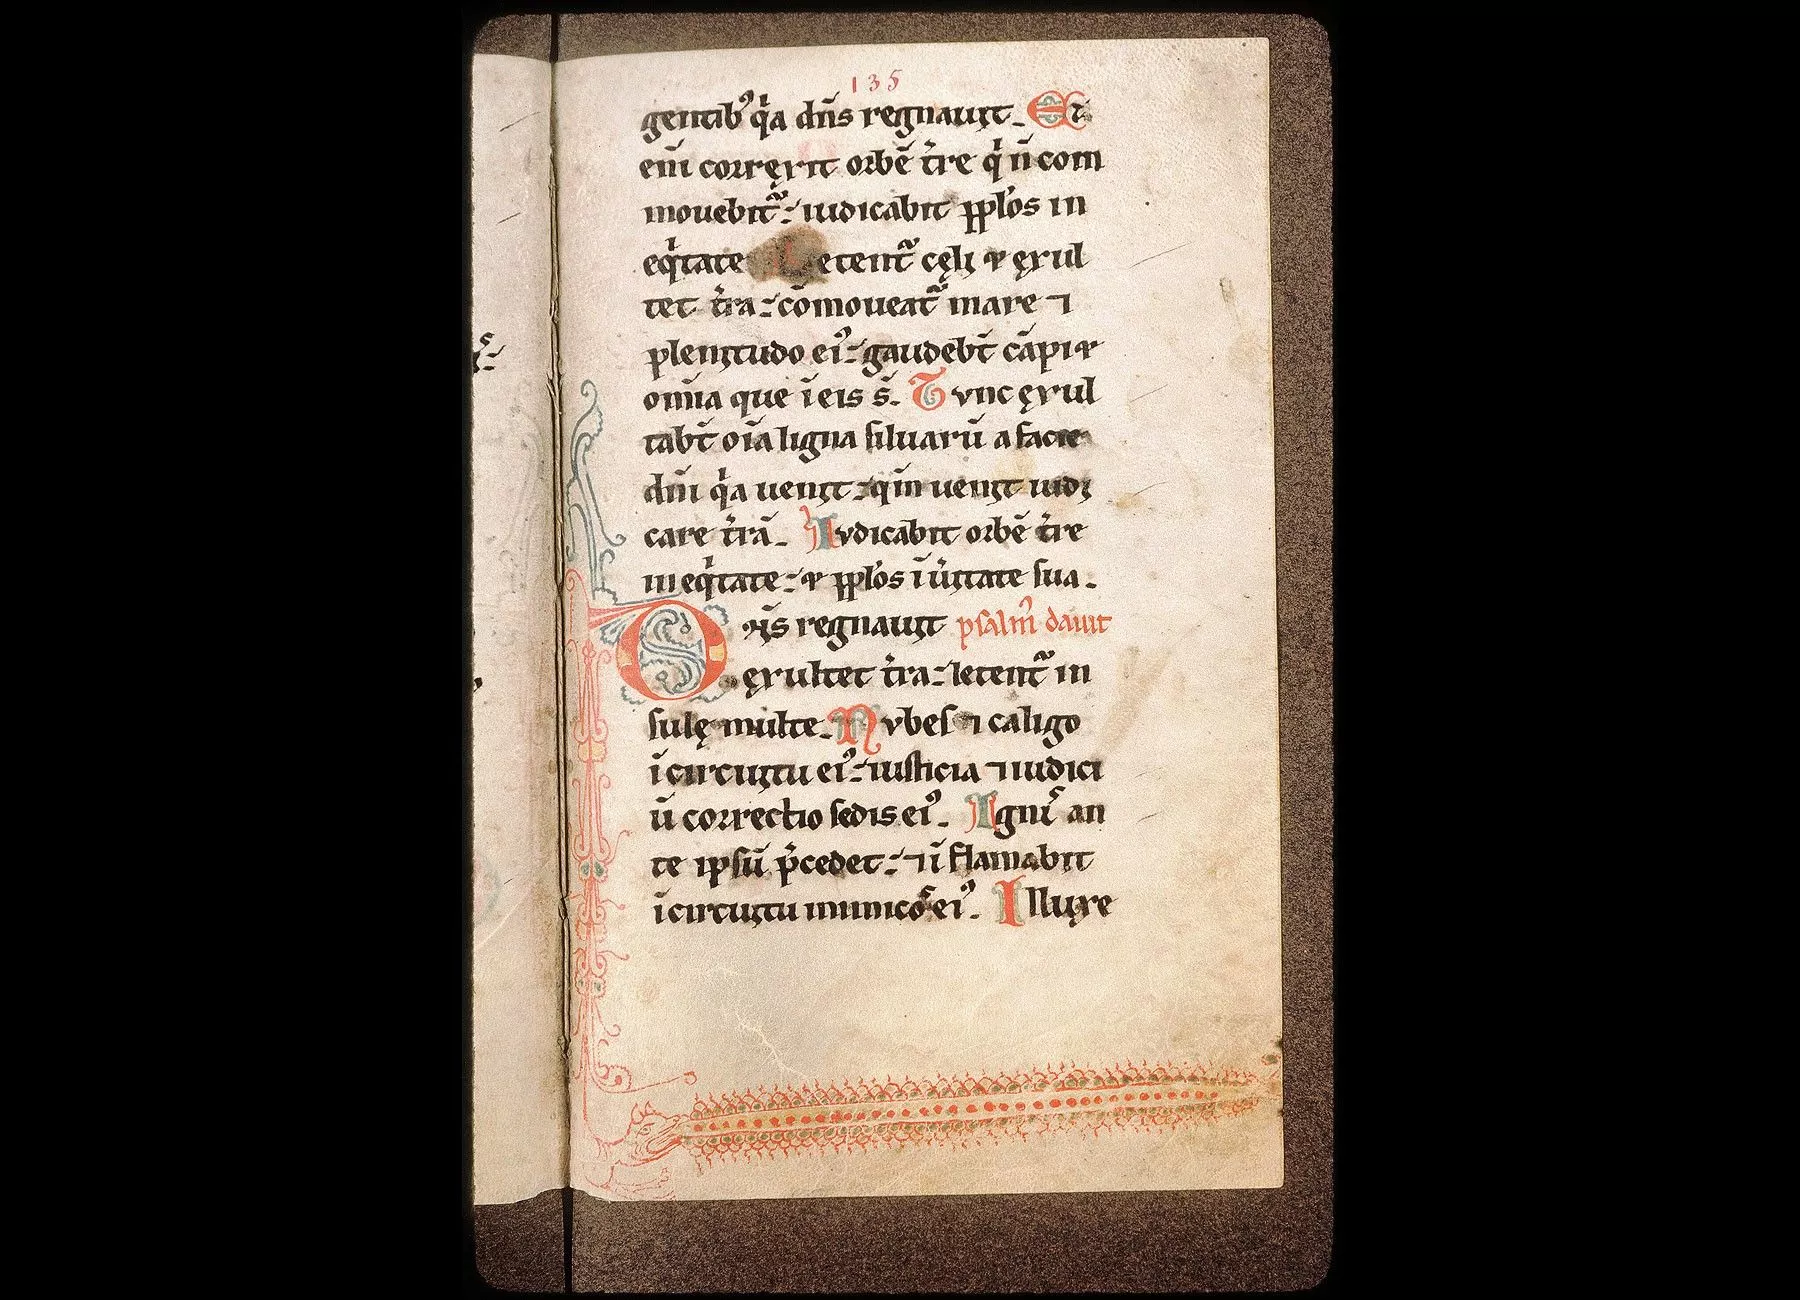 135
gentib᷒ qͥa dn̄s regnauit. Et
eni̅ correxit orbē tr̄e qͥ n̄ com
mouebit᷑: iudicabit pp̄los in
eqͥtate Letent᷑ cęli ⁊ exul
tet tr̄a: cōmoueat᷑ mare ⁊
plenitudo ei᷒: gaudebt̄ cāpi ⁊
omīa que ī eis s̄. Tvnc exul
tabt̄ oīa ligna siluarū a facie
dn̄i qͥa uenit: qm̄ uenit iudi
care tr̄ā. Ivdicabit orbē tr̄e
in eqͥtate: ⁊ pp̄los ī ūitate sua.
Dn̄s regnauit psalm̄ dauit
exultet tr̄a: letent᷑ in
sulę multe. Nvbes ⁊ caligo
ī circuitu ei᷒: iusticia ⁊ iudici
ū correctio sedis ei᷒. Igni᷒ an
te ipsū p̄cedet: ⁊ ī flamabit
ī circuitu inimicos ei᷒. Illuxe